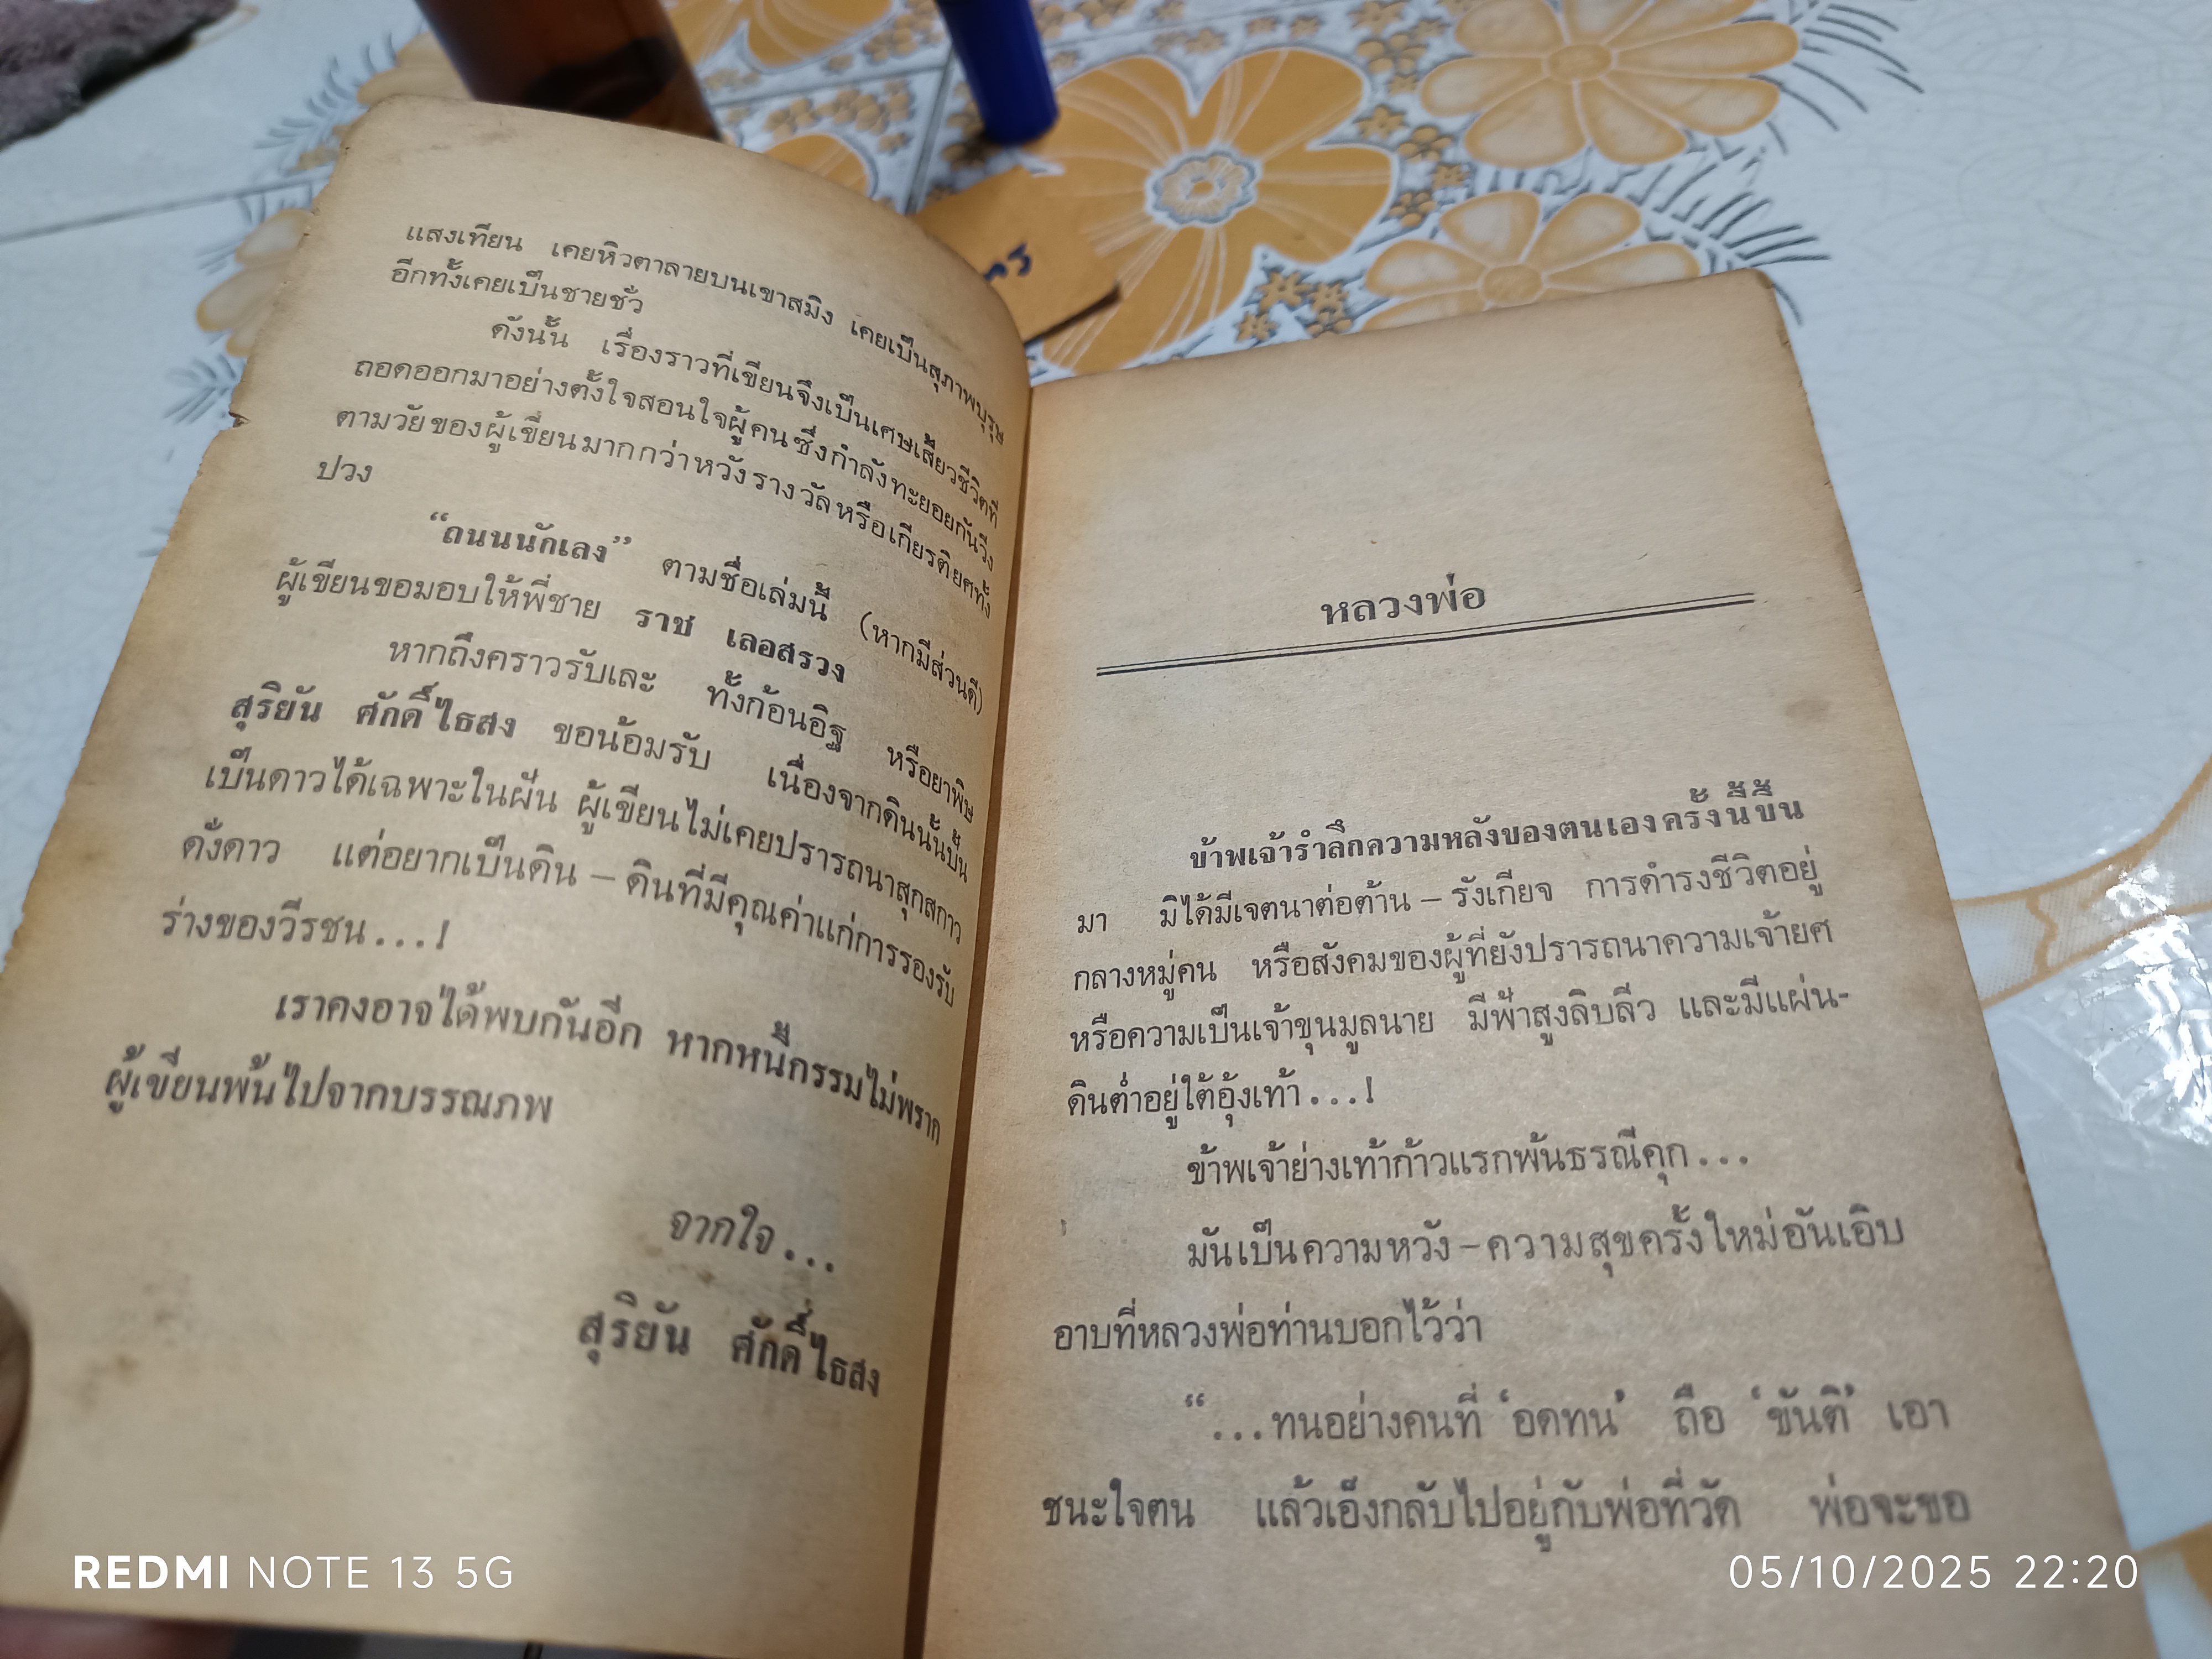 แสงเทียน เคยหิวตาลายบนเขาสมิง เคยเป็นสุภาพบุรุษ
อีกทั้งเคยเป็นชายชั่ว
ดังนั้น เรื่องราวที่เขียนจึงเป็นเศษเสี้ยวชีวิตที่
ถอดออกมาอย่างตั้งใจสอนใจผู้คนซึ่งกำลังทะยอยกันวิ่ง
ตามวัยของผู้เขียนมากกว่าหวังรางวัลหรือเกียรติยศทั้ง
ปวง
“ถนนนักเลง” ตามชื่อเล่มนี้ (หากมีส่วนดี)
ผู้เขียนขอมอบให้พี่ชาย ราช เลอสรวง
หากถึงคราวรับเละ ทั้งก้อนอิฐ หรือยาพิษ
สุริยัน ศักดิ์ไธสง ขอน้อมรับ เนื่องจากดินนั้นปั้น
เป็นดาวได้เฉพาะในฝัน ผู้เขียนไม่เคยปรารถนาสุกสกาว
ดั่งดาว แต่อยากเป็นดิน – ดินที่มีคุณค่าแก่การรองรับ
ร่างของวีรชน...!
เราคงอาจได้พบกันอีก หากหนี้กรรมไม่พราก
ผู้เขียนพ้นไปจากบรรณภพ
จากใจ...
สุริยัน ศักดิ์ไธสง
หลวงพ่อ
ข้าพเจ้ารำลึกความหลังของตนเองครั้งนี้ขึ้น
มา มิได้มีเจตนาต่อต้าน – รังเกียจ การดำรงชีวิตอยู่
กลางหมู่คน หรือสังคมของผู้ที่ยังปรารถนาความเจ้ายศ
หรือความเป็นเจ้าขุนมูลนาย มีฟ้าสูงลิบลิ่ว และมีแผ่น-
ดินต่ำอยู่ใต้อุ้งเท้า...!
ข้าพเจ้าย่างเท้าก้าวแรกพ้นธรณีคุก...
มันเป็นความหวัง – ความสุขครั้งใหม่อันเอิบ
อาบที่หลวงพ่อท่านบอกไว้ว่า
“...ทนอย่างคนที่ ‘อดทน’ ถือ ‘ขันติ’ เอา
ชนะใจตน แล้วเอ็งกลับไปอยู่กับพ่อที่วัด พ่อจะขอ
REDMI NOTE 13 5G
05/10/2025 22:20